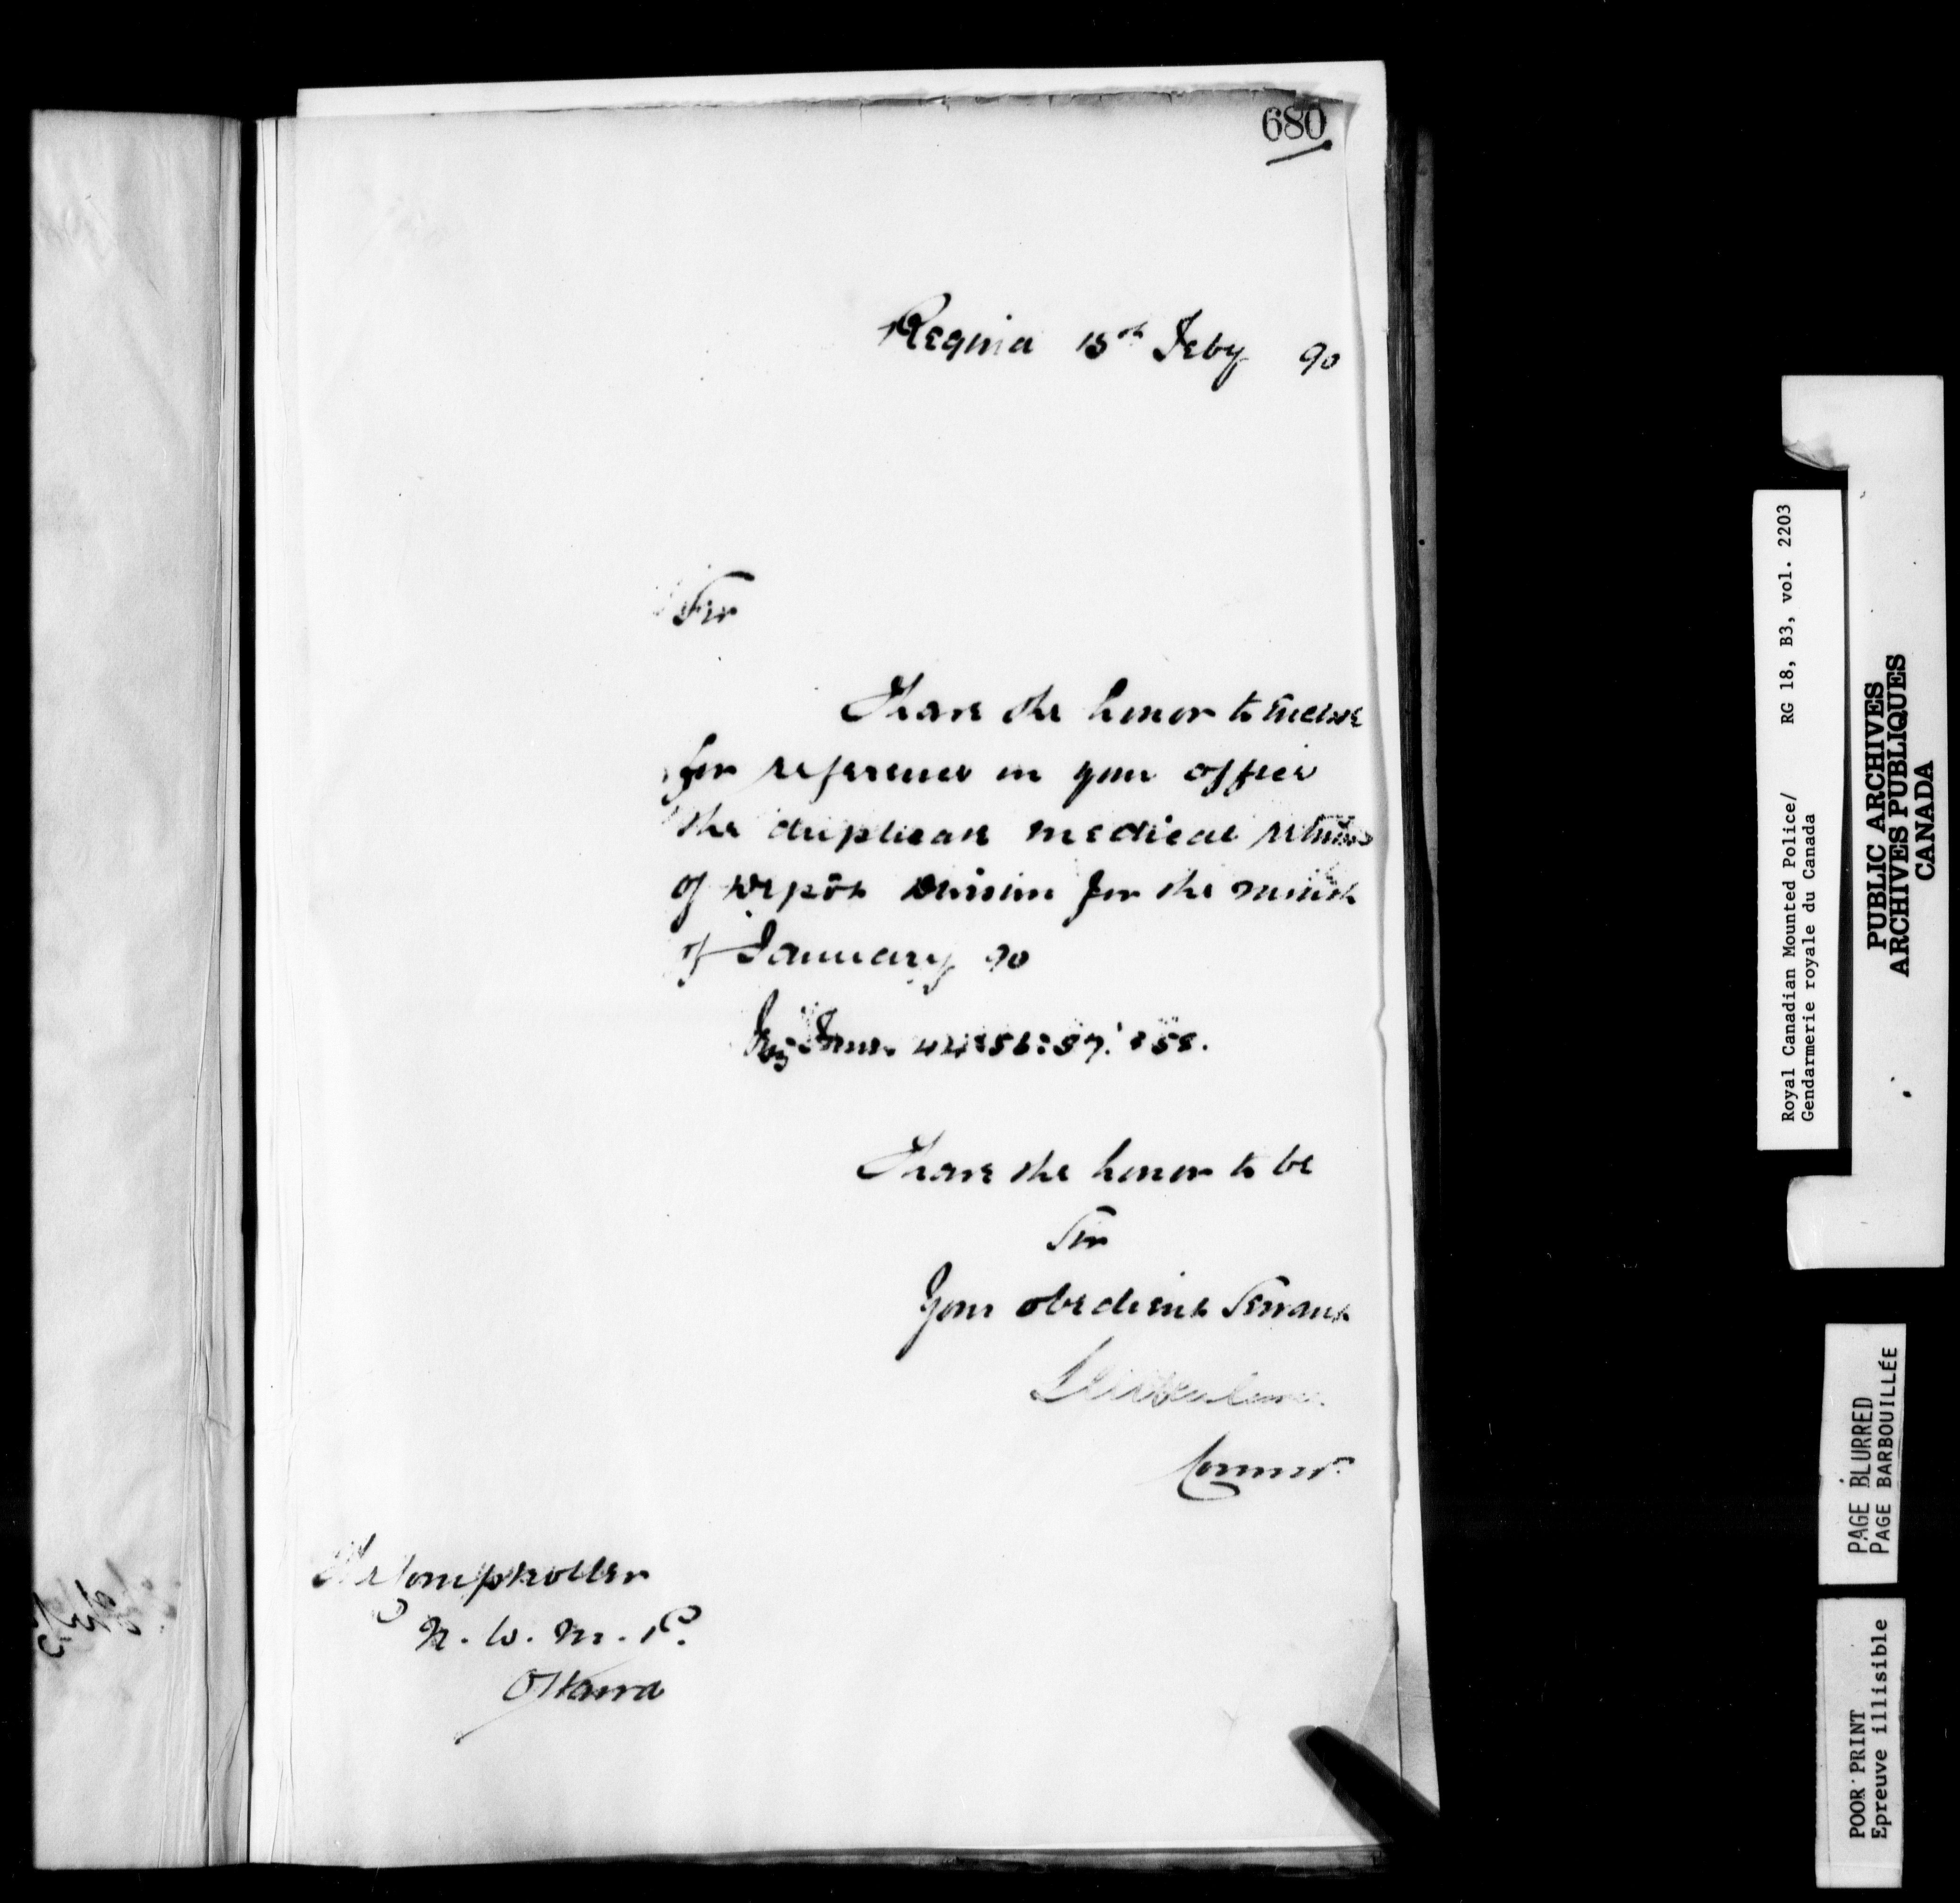 680
Regina 15th Feby 90
Sir
I have the honor to enclose
for reference in your office
the duplicate medical returns
of Depôt Division for the month
of January 90
Forms 44: 56: 57: & 58.
I have the honor to be
Sir
Your obedient Servant
Commr.
The Comptroller
N. W. M. P.
Ottawa
Royal Canadian Mounted Police/ RG 18, B3, vol. 2203
Gendarmerie royale du Canada
PUBLIC ARCHIVES
ARCHIVES PUBLIQUES
CANADA
PAGE BLURRED
PAGE BARBOUILLÉE
POOR PRINT
Epreuve illisible